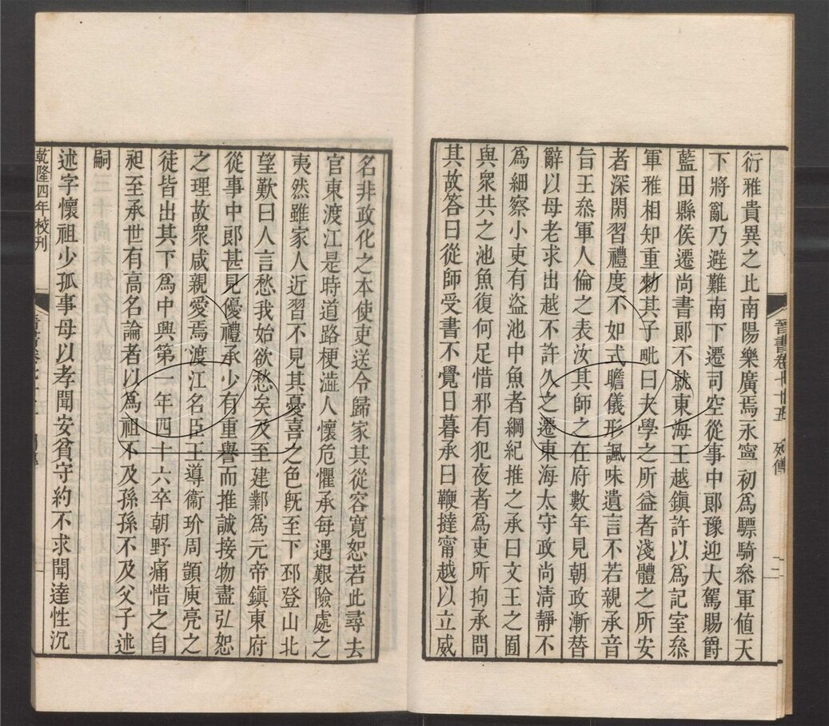 衍雅貴異之比南陽樂廣焉永寧初爲驃騎叅軍値天
下將亂乃避難南下遷司空從事中郎豫迎大駕賜爵
藍田縣侯遷尚書郎不就東海王越鎭許以爲記室叅
軍雅相知重勑其子毗曰夫學之所益者淺體之所安
者深閑習禮度不如式瞻儀形諷味遺言不若親承音
旨王叅軍人倫之表汝其師之在府數年見朝政漸替
辭以母老求出越不許久之遷東海太守政尚淸靜不
爲細察小吏有盜池中魚者綱紀推之承曰文王之囿
與衆共之池魚復何足惜邪有犯夜者爲吏所拘承問
其故答曰從師受書不覺日暮承曰鞭撻甯越以立威
晉書卷七十五 列傳
二
名非政化之本使吏送令歸家其從容寬恕若此尋去
官東渡江是時道路梗澁人懷危懼承每遇艱險處之
夷然雖家人近習不見其憂喜之色旣至下邳登山北
望歎曰人言愁我始欲愁矣及至建鄴爲元帝鎭東府
從事中郎甚見優禮承少有重譽而推誠接物盡弘恕
之理故衆咸親愛焉渡江名臣王導衞玠周顗庾亮之
徒皆出其下爲中興第一年四十六卒朝野痛惜之自
昶至承世有高名論者以爲祖不及孫孫不及父子述
嗣
述字懷祖少孤事母以孝聞安貧守約不求聞達性沉
乾隆四年校刊